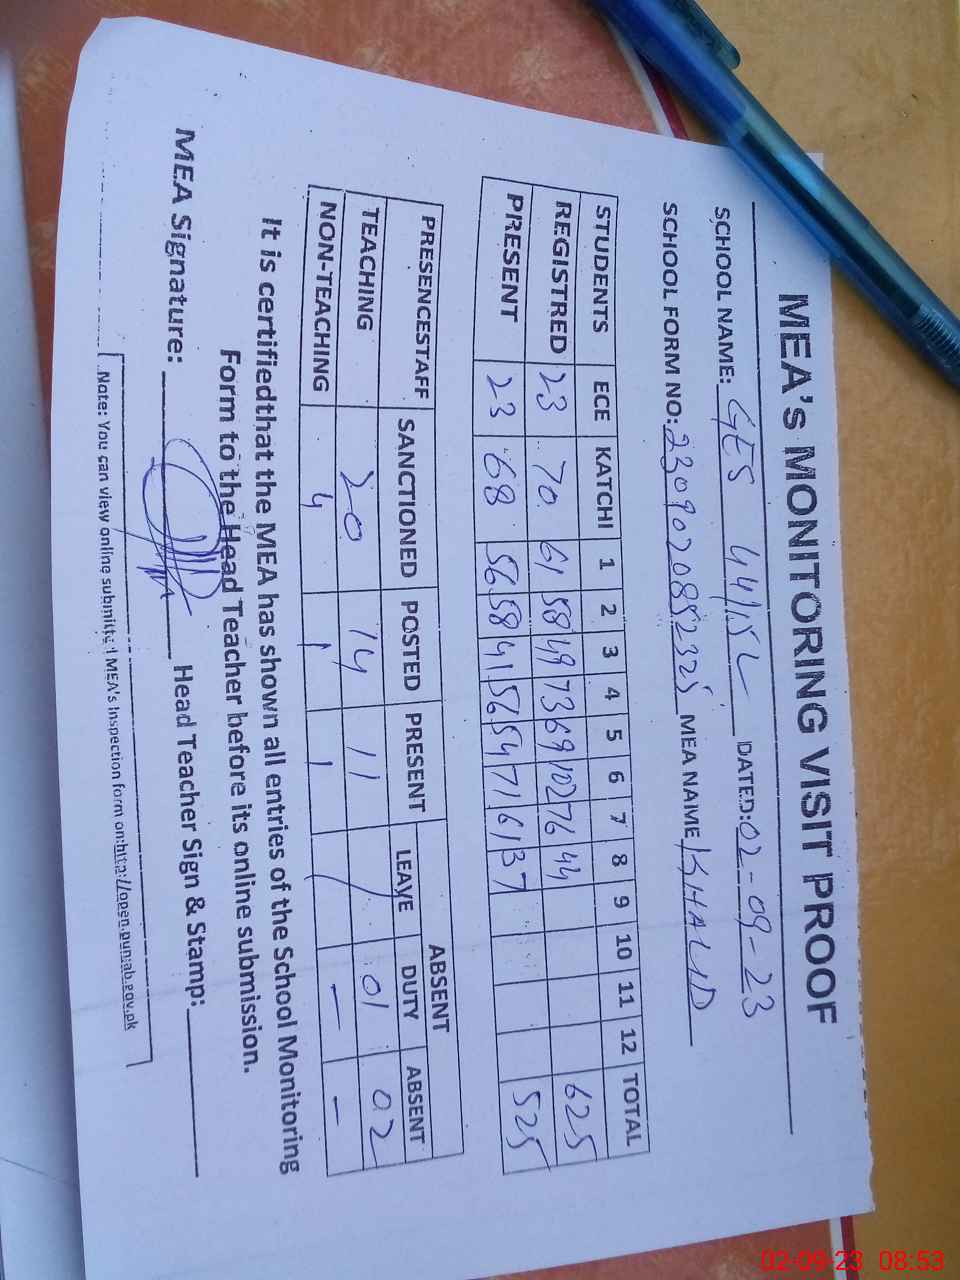 MEA's MONITORING VISIT PROOF
SCHOOL NAME: GES 44/15L DATED: 02-09-23
SCHOOL FORM NO: 2309020852325 MEA NAME KHALID
STUDENTS ECE KATCHI 1 2 3 4 5 6 7 8 9 10 11 12 TOTAL
REGISTRED 23 70 61 58 49 73 69 102 76 44 625
PRESENT 23 68 56 58 41 56 54 71 61 37 525
ABSENT
PRESENCESTAFF SANCTIONED POSTED PRESENT LEAVE DUTY ABSENT
TEACHING 20 14 11 / 01 02
NON-TEACHING 4 1 1 / - -
It is certifiedthat the MEA has shown all entries of the School Monitoring
Form to the Head Teacher before its online submission.
MEA Signature: Head Teacher Sign & Stamp:
Note: You can view online submitted MEA's Inspection form on:http://open.punjab.gov.pk
02-09-23 08:53